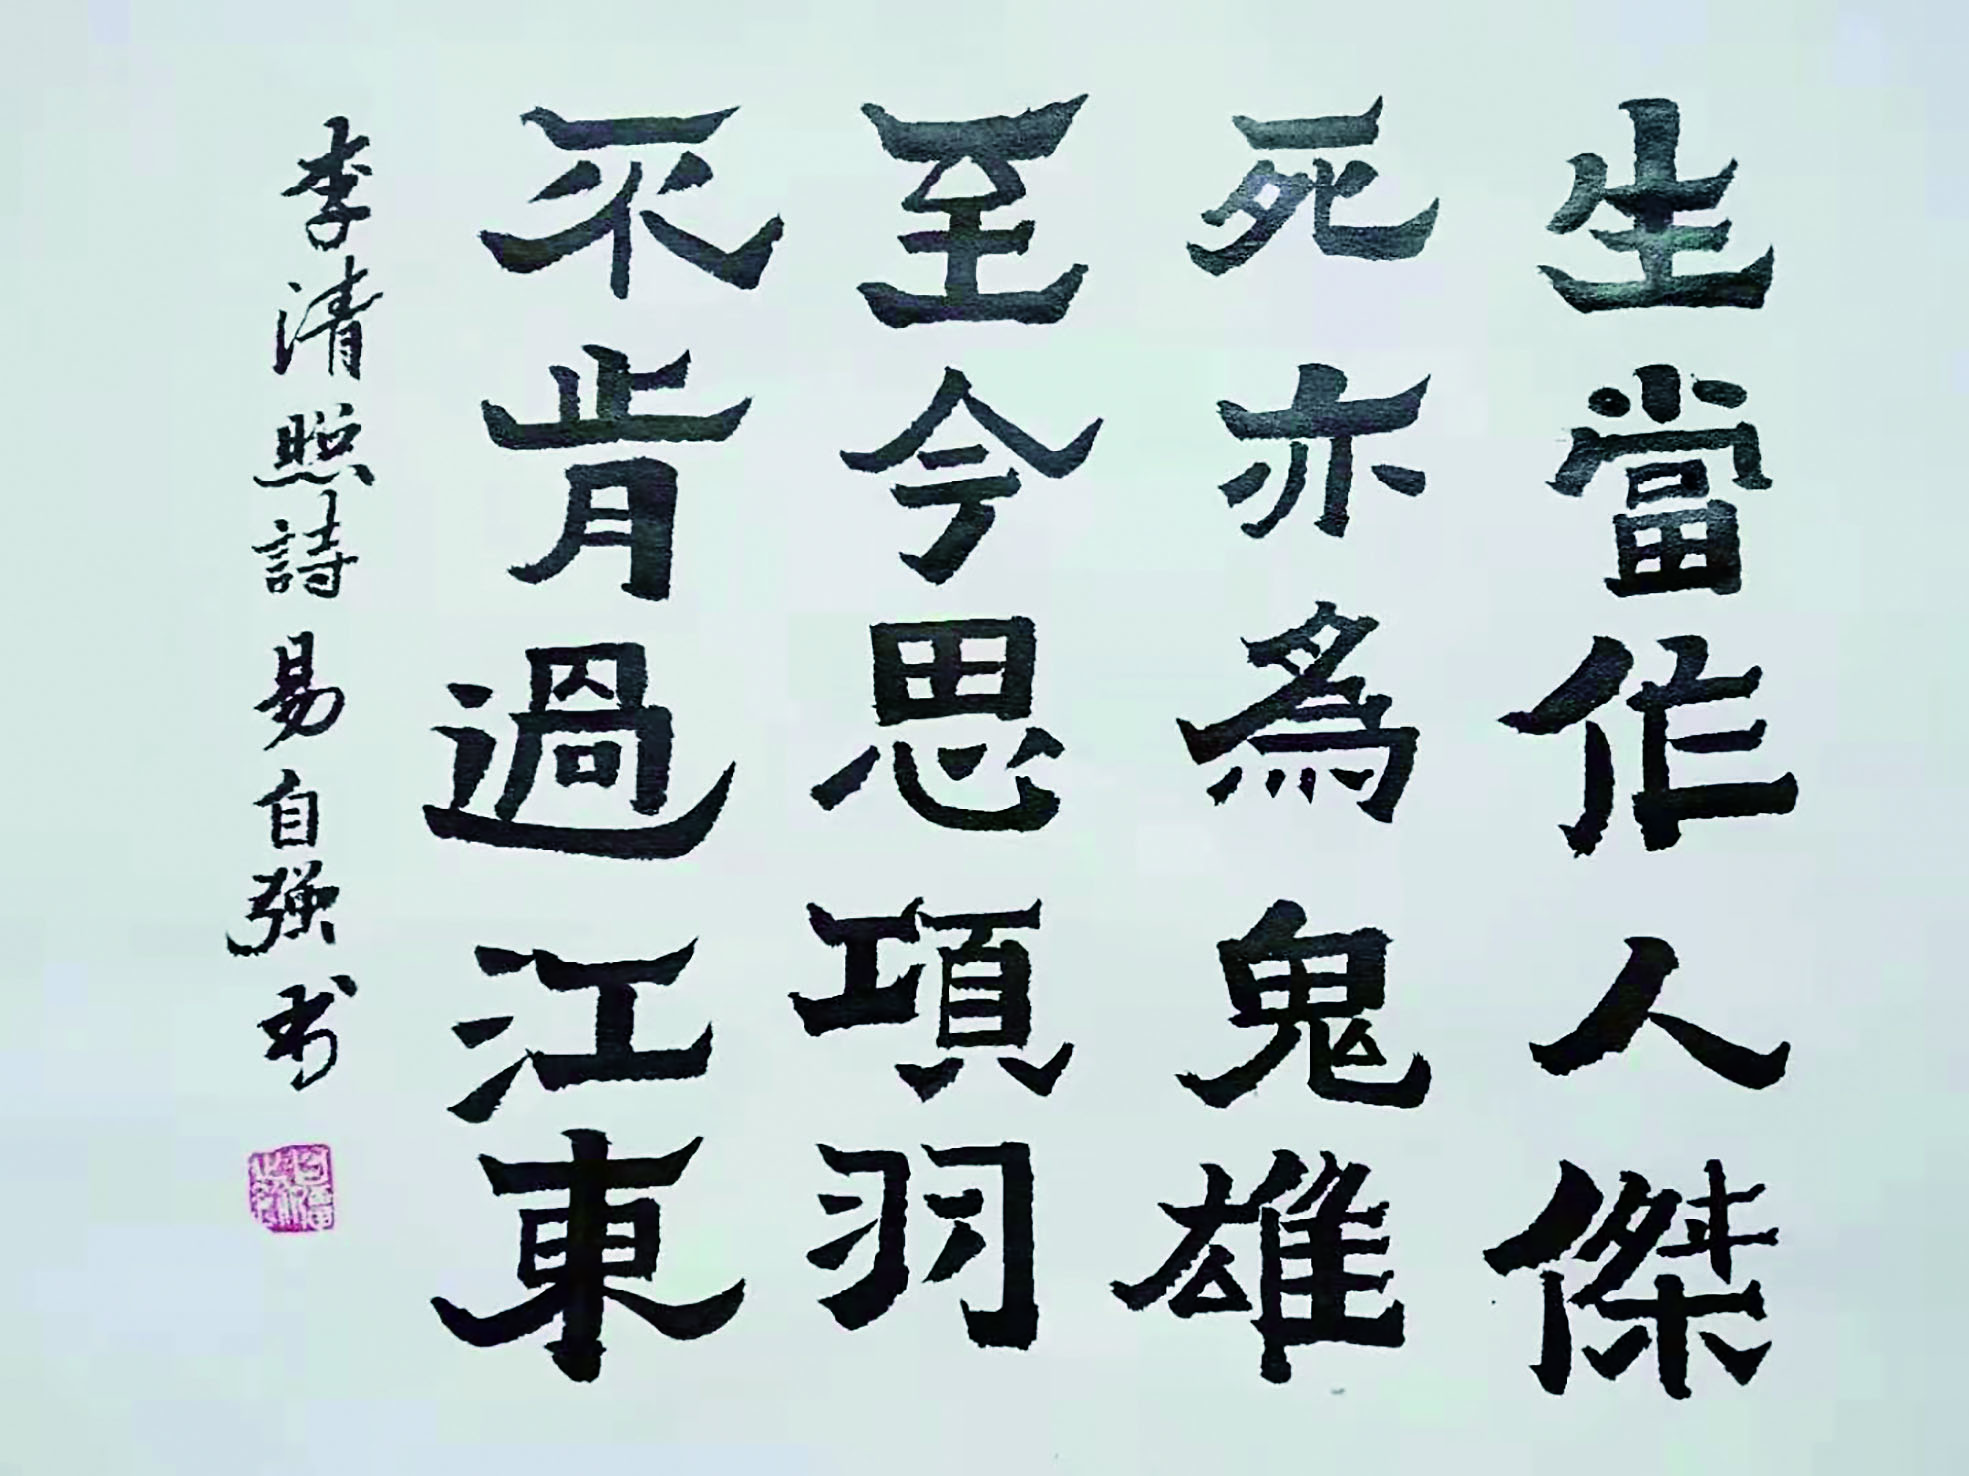 生當作人傑
死亦為鬼雄
至今思項羽
不肯過江東
李清照詩易自強书